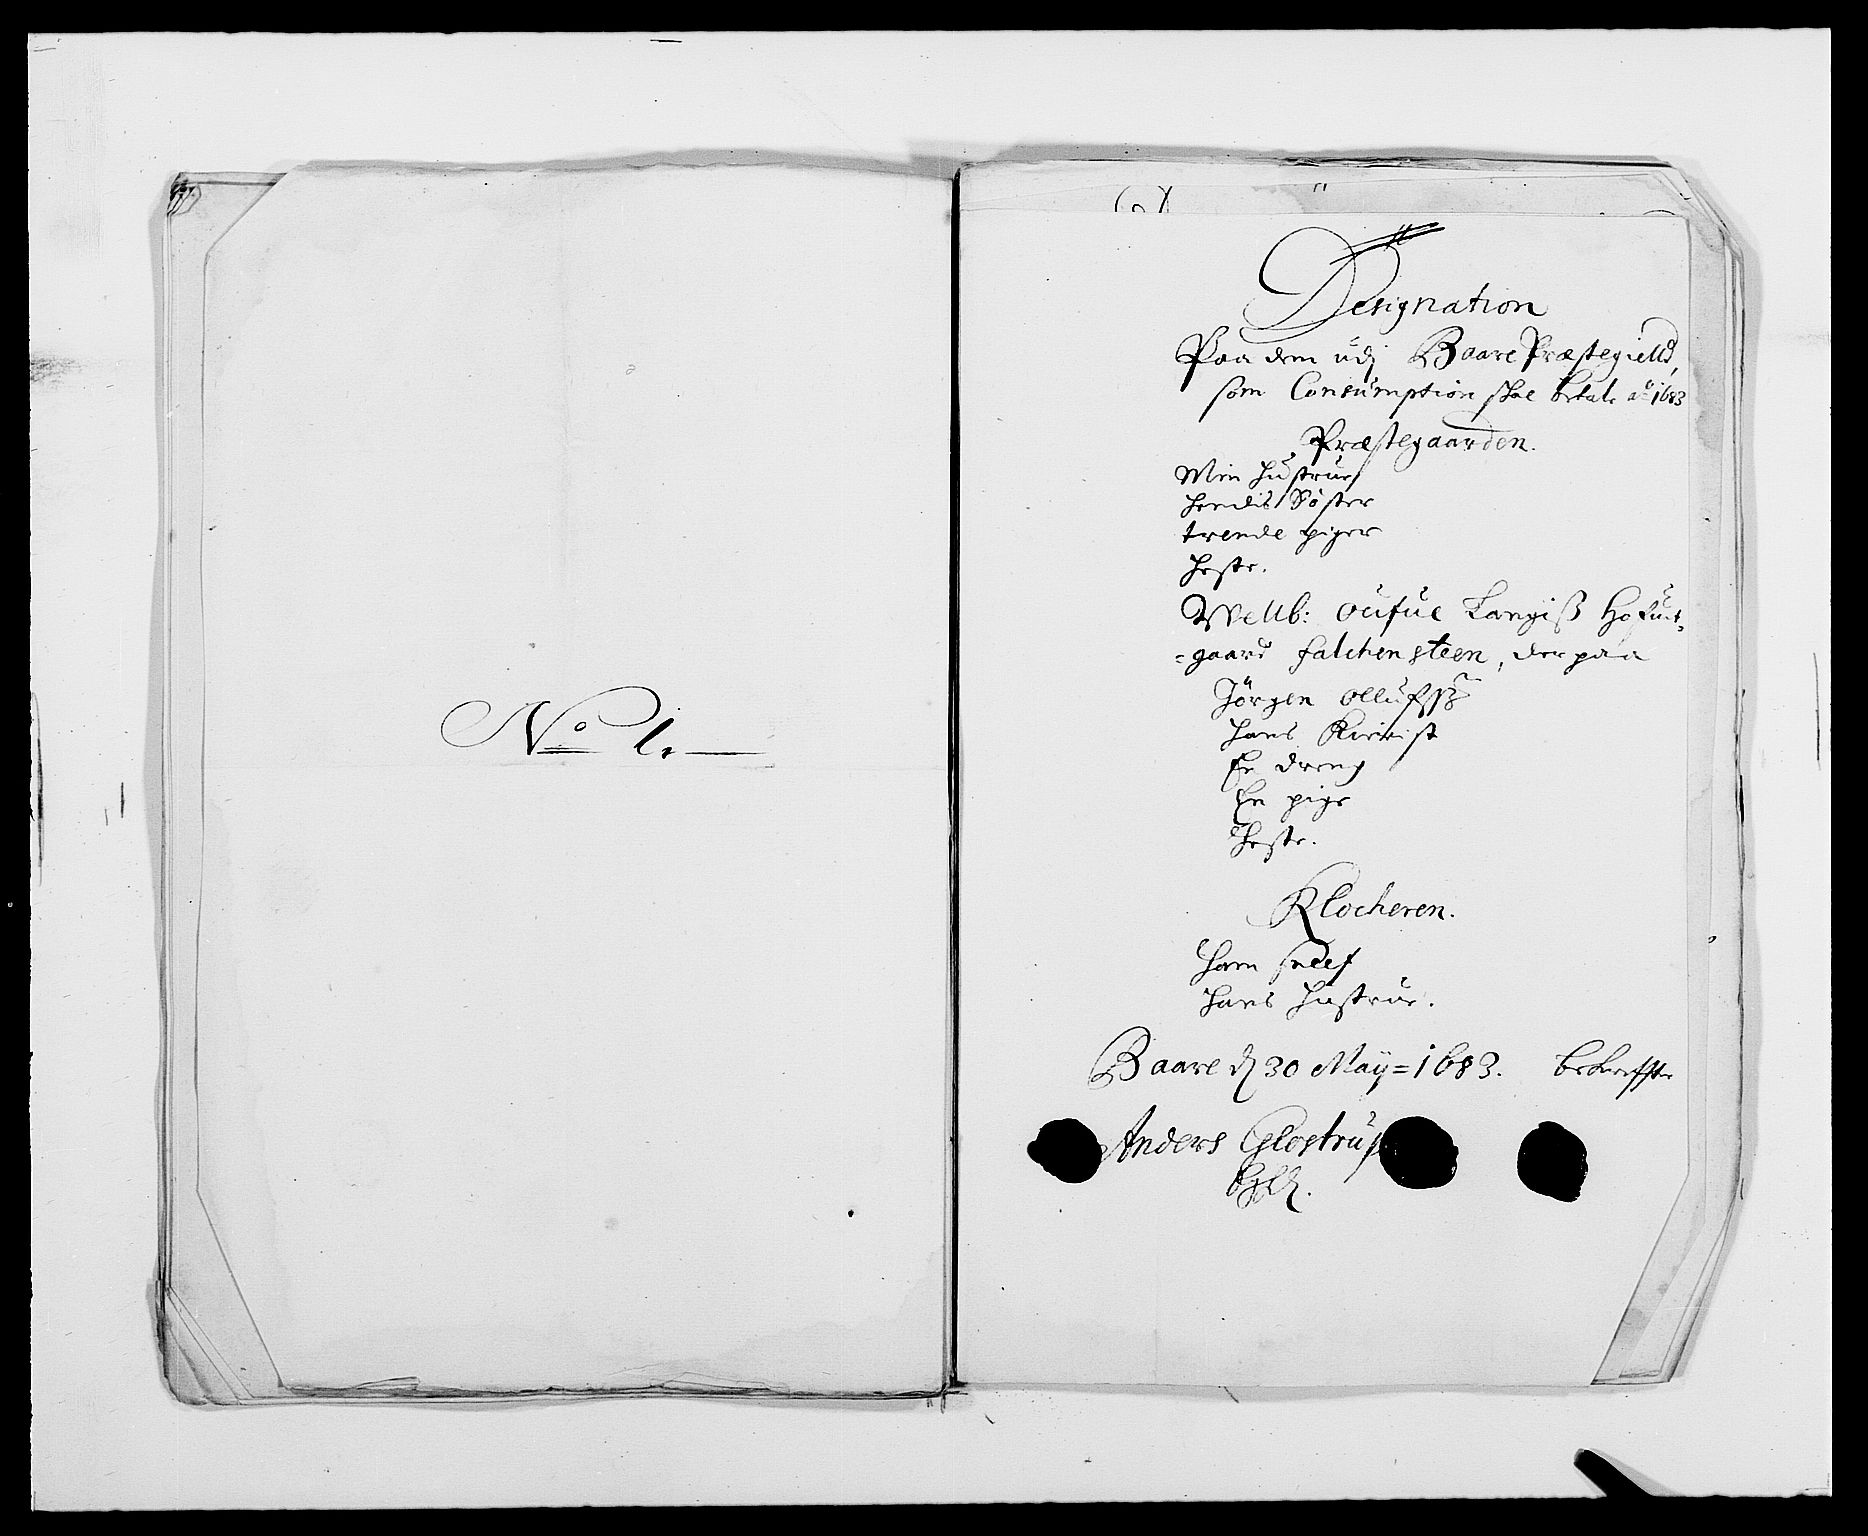 No 1.
Designation
Paa dem udj Baare Præstegield,
som Consumption skal betale ao 1683
Præstegaarden.
Min hustrue
hendis Söster
trende piger
heste.
Wellb: Langiß
gaard falchensteen, der paa
Jörgen Ollufß
hans
En dreng
En pige
heste.
Klocheren.
ham self
hans hustrue.
Baare d 30 Maÿ = 1683. bekrefter
Anders Glostrup